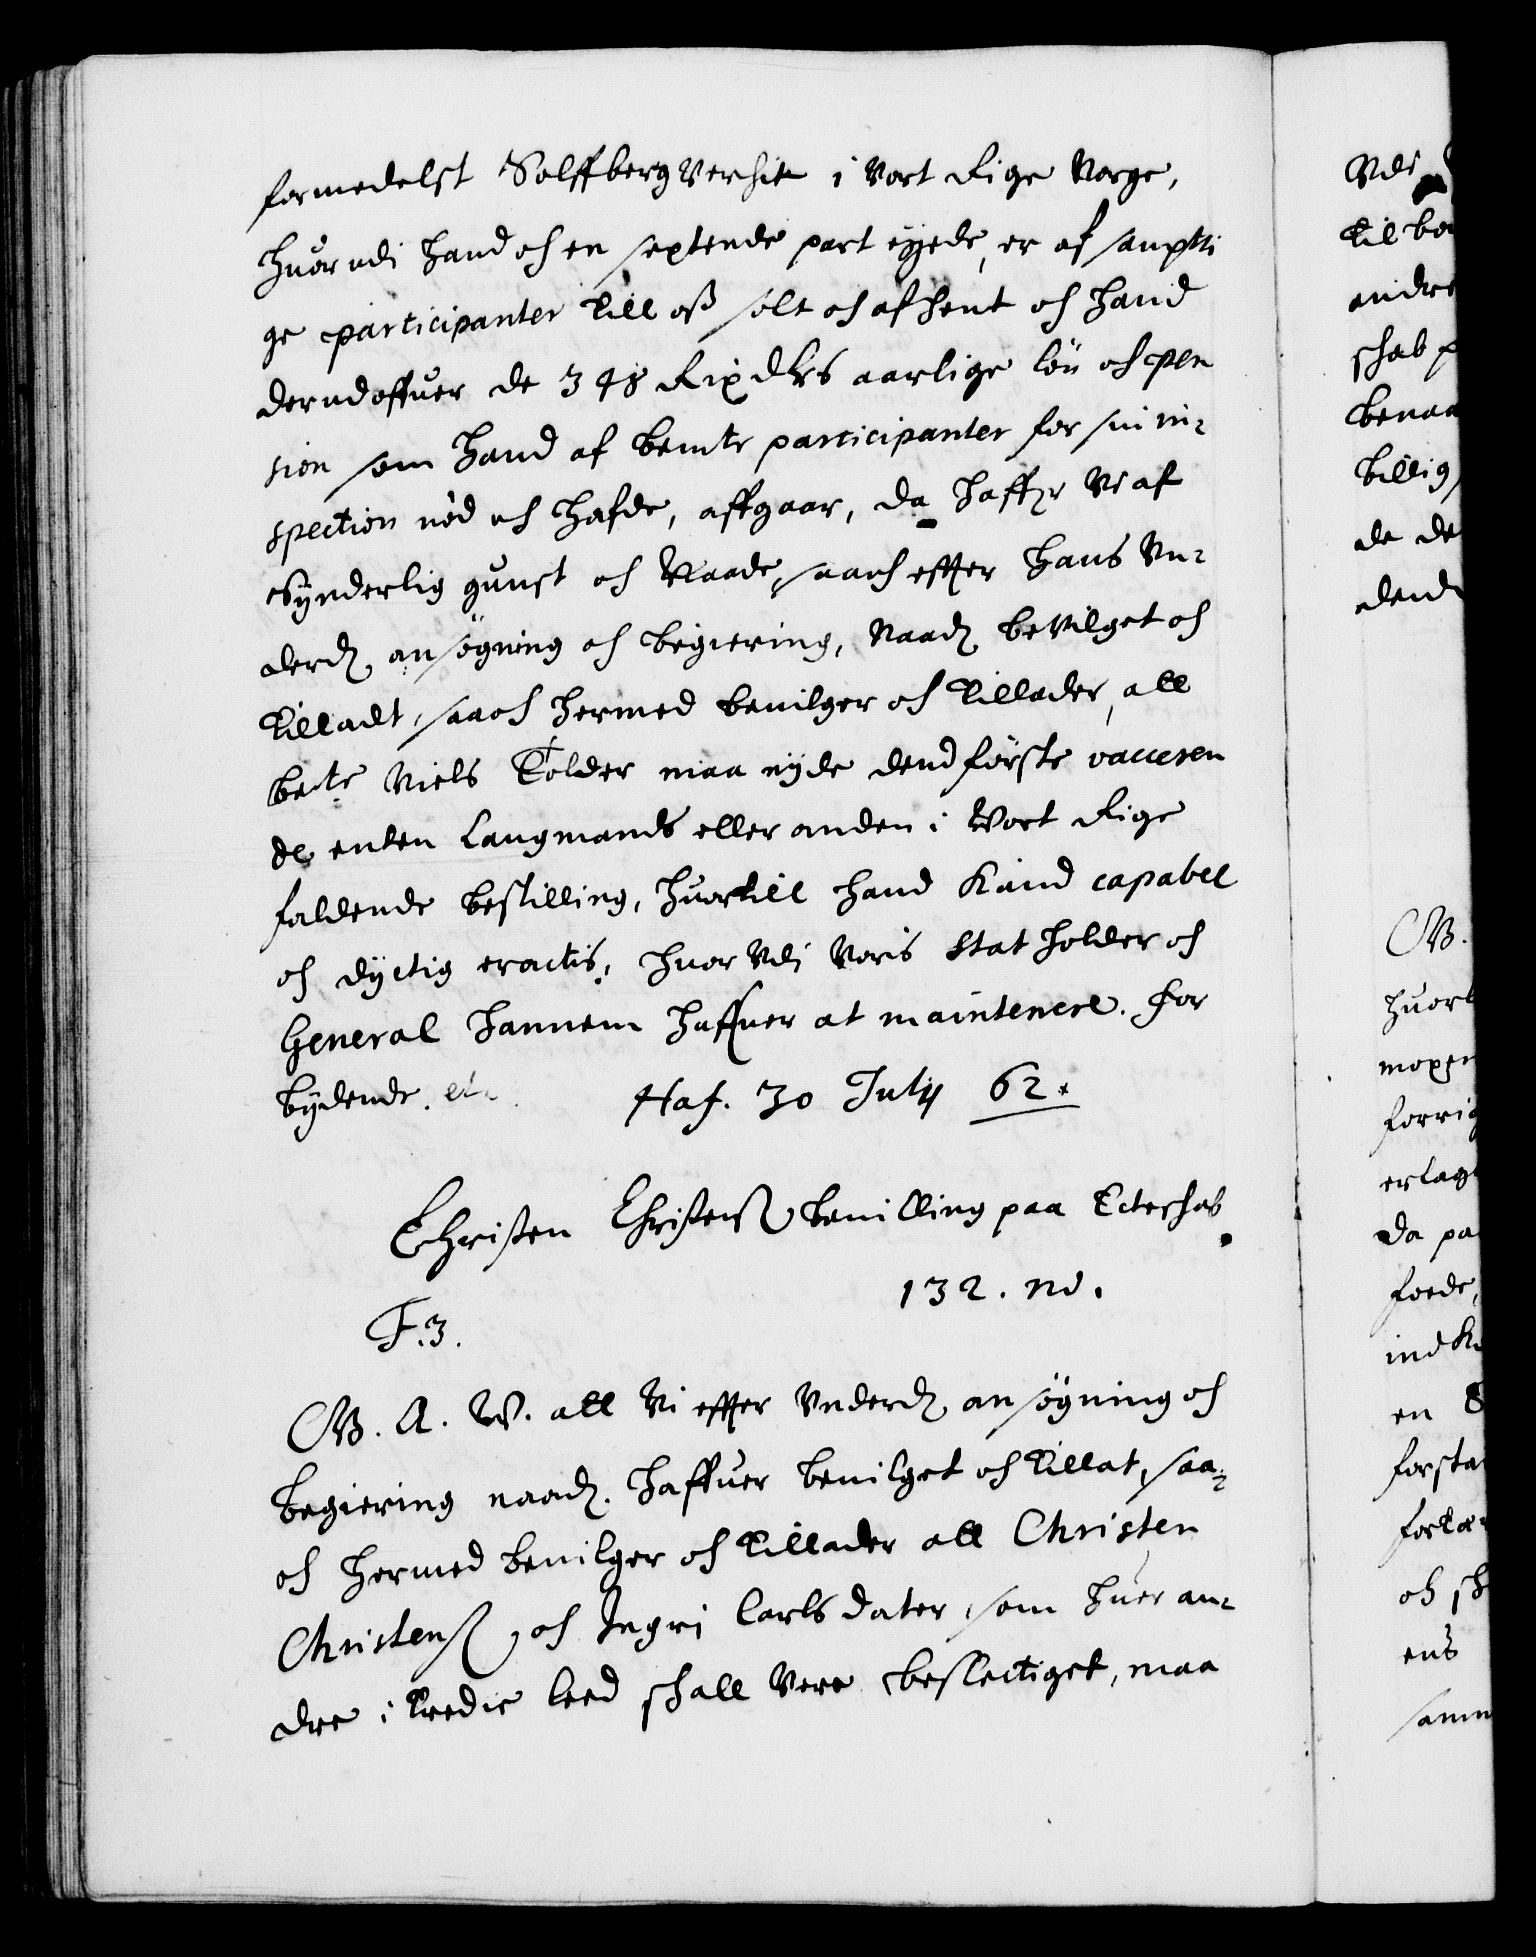 formedelst Solffbergverchit i vort Rige Norge,
huor udi hand och en sextende part eyede, er af samptli
ge participanter till oß solt och afhent och hand
derudoffuer de 348 Rixdlrs aarlige lön och pen
sion som hand af bemte participanter for sin in-
spection nöd och hafde, affgaar, da haffr Vi af
synderlig gunst och Naade, saa och effter hans Un-
derd ansögning och begiering, Naad bevilget och
tilladt, saa och hermed bevilger och tillader, att
bete Niels Tolder maa nyde dend förste vaceren
de enten Laugmands eller anden i Vort Rige
faldende bestilling, huortill hand kand capabel
och dyctig eractis, huor Udi Voris Statholder och
General hannem haffuer at maintenere. For
bydende. etc. Haf. 30 July 62.
Christen Christenß bevilling paa Ecteschab
132. nd.
F. 3.
G. A. W. att Vi effter Underd ansögning och
begiering naad. haffuer bevilget och tillat, saa
och hermed bevilger och tillader att Christen
Christenß och Ingri Carls dater, som huer an-
dre i tredie leed schall vere beslectiget, maa
Udi
andre
schab
billig
de de
G.
forrig
erlagt
da pa
foede,
en
och
ens